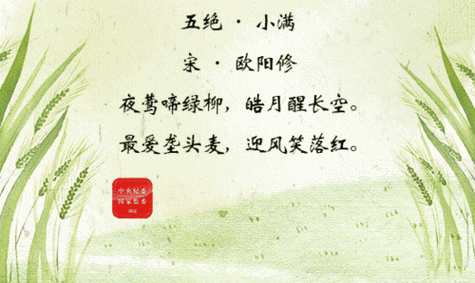 五绝 · 小满
宋 · 欧阳修
夜莺啼绿柳，皓月醒长空。
最爱垄头麦，迎风笑落红。
中央纪委
国家监委